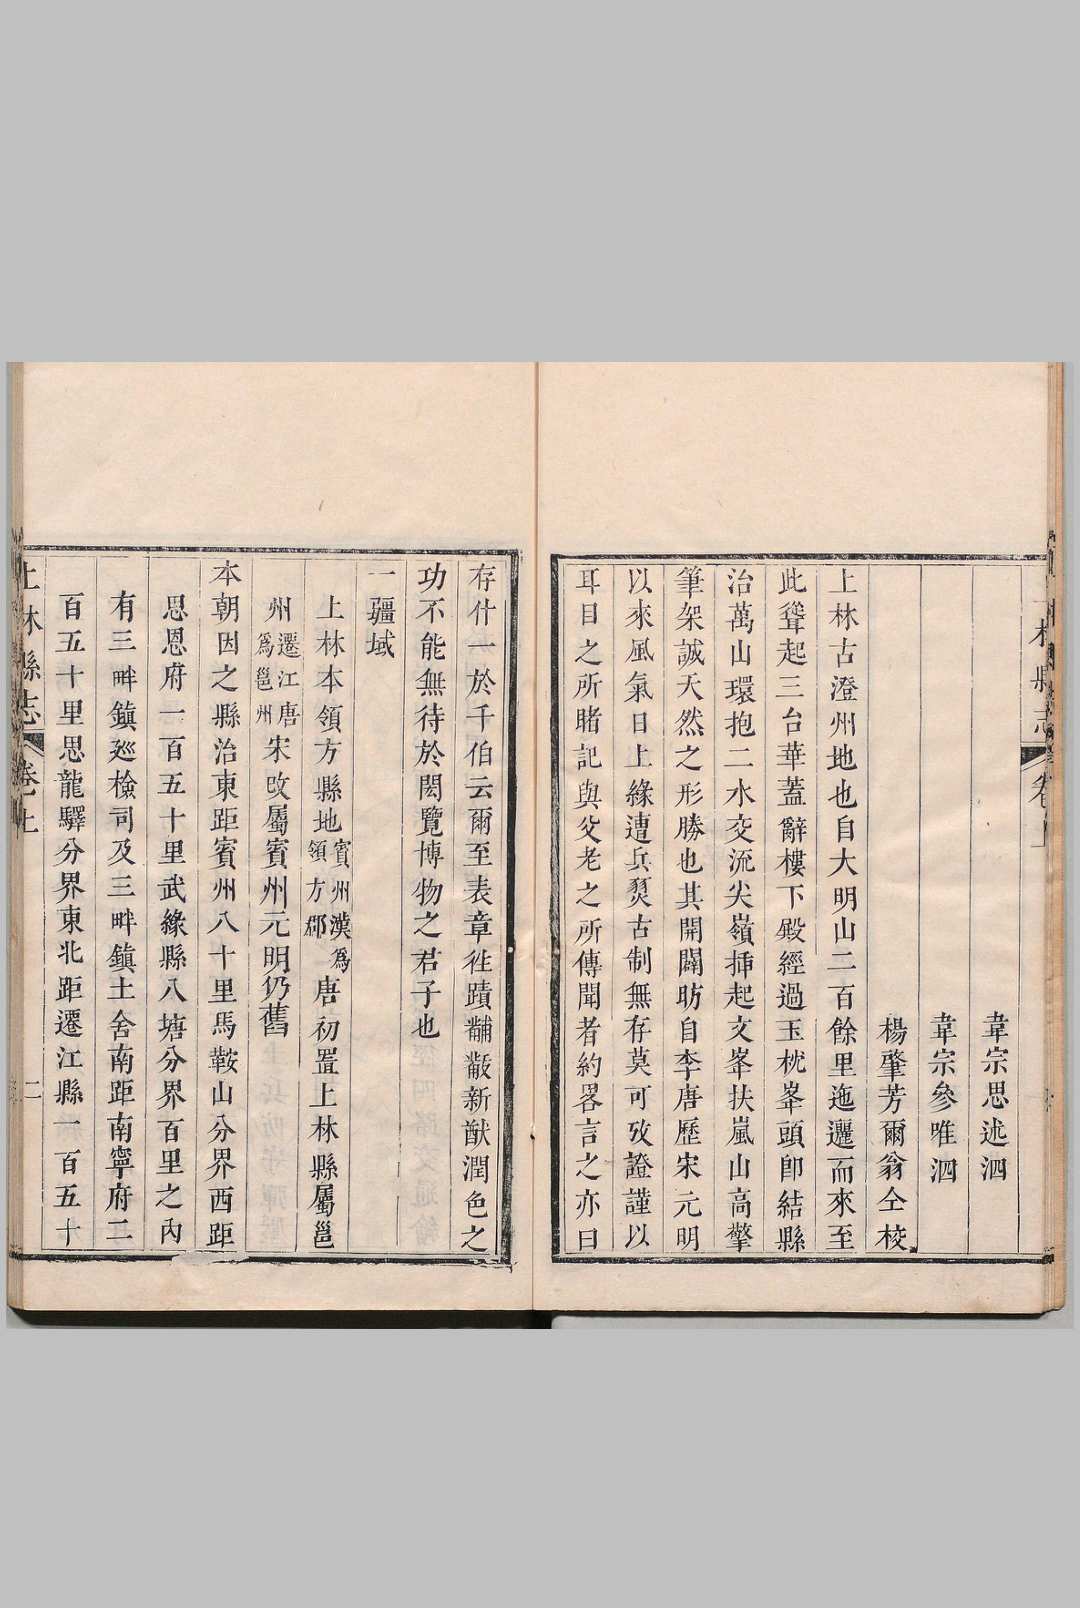 韋宗思述泗
韋宗參唯泗
楊肇芳爾翁仝校
上林古澄州地也自大明山二百餘里迤邐而來至
此聳起三台華蓋辭樓下殿經過玉枕峯頭卽結縣
治萬山環抱二水交流尖嶺揷起文峯扶嵐山高擎
筆架誠天然之形勝也其開闢昉自李唐歷宋元明
以來風氣日上緣遭兵燹古制無存莫可攷證謹以
耳目之所睹記與父老之所傳聞者約畧言之亦曰
存什一於千伯云爾至表章徃蹟黼黻新猷潤色之
功不能無待於閎覽博物之君子也
一疆域
上林本領方縣地賓州漢爲領方郡唐初置上林縣屬邕
州遷江唐爲邕州宋改屬賓州元明仍舊
本朝因之縣治東距賓州八十里馬鞍山分界西距
思恩府一百五十里武緣縣八塘分界百里之內
有三畔鎮廵檢司及三畔鎮土舍南距南寧府二
百五十里思龍驛分界東北距遷江縣一百五十
上林縣志 卷上 二